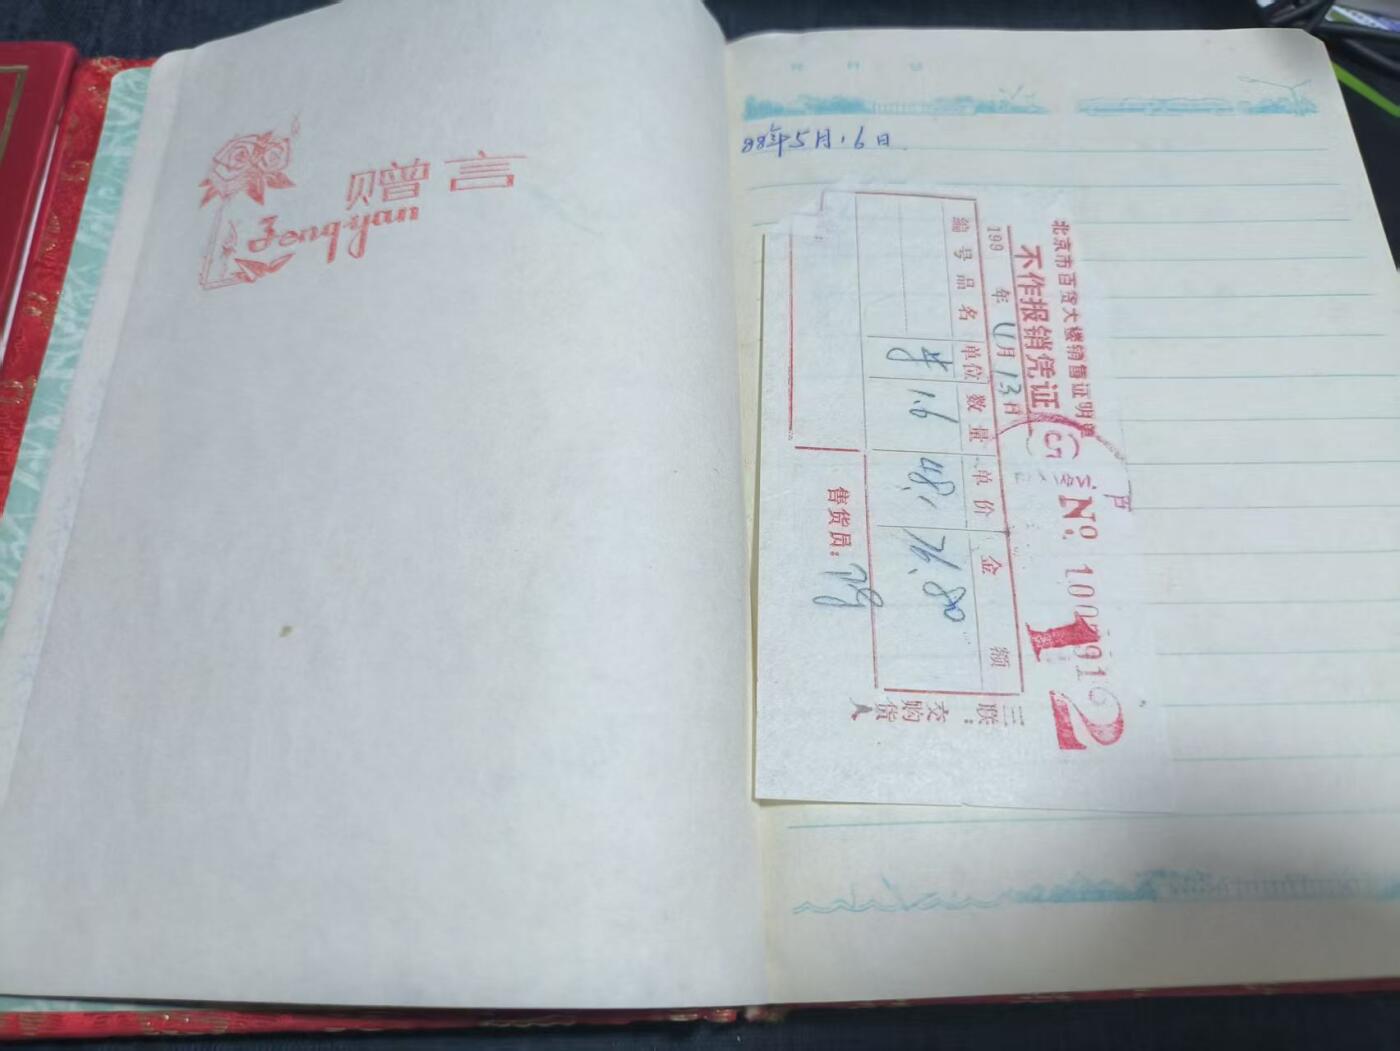 赠言
Zengyan
88年5月16日
北京市百货大楼销售证明单
不作报销凭证
199 年4月13日
№ 100
12
编号 品名 单位 数量 单价 金额
1.6 48. 76.80
售货员:
三联:交购货人